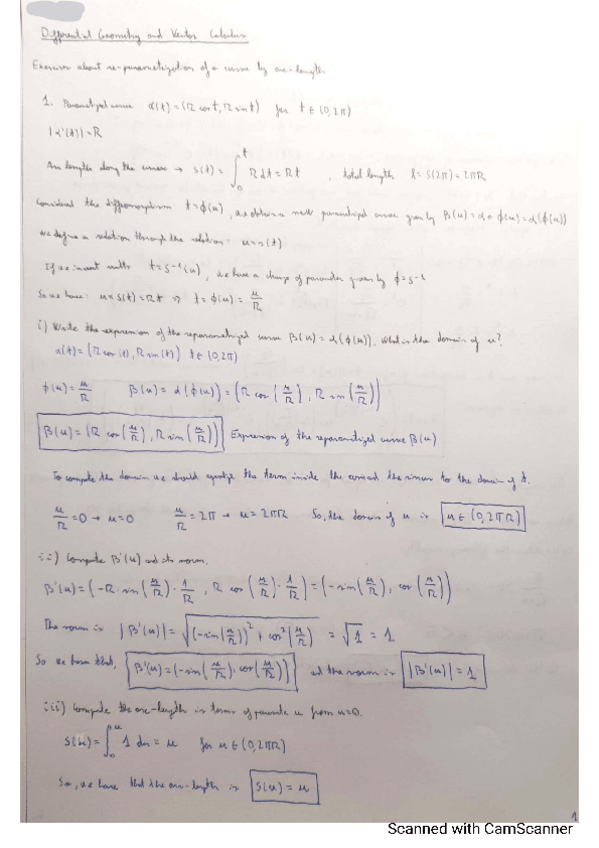 Differential Geometry and Vector Calculus
Exercise about re-parametrization of a curve by arc-length
1. Parametrized curve α(t) = (R cos t, R sin t) for t ∈ (0, 2π)
|α'(t)| = R
Arc length along the curve → s(t) = ∫₀ᵗ R dt = Rt , total length l = s(2π) = 2πR
Considered the diffeomorphism t = ϕ(u), we obtain a new parametrized curve given by β(u) = α ∘ ϕ(u) = α(ϕ(u))
We define a relation through the relation: u = s(t)
If we invert with t = s⁻¹(u), we have a change of parameter given by ϕ = s⁻¹
So we have: u = s(t) = Rt ⇒ t = ϕ(u) = u/R
i) Write the expression of the reparametrized curve β(u) = α(ϕ(u)). What is the domain of u?
α(t) = (R cos(t), R sin(t)) t ∈ (0, 2π)
ϕ(u) = u/R β(u) = α(ϕ(u)) = (R cos(u/R), R sin(u/R))
β(u) = (R cos(u/R), R sin(u/R)) Expression of the reparametrized curve β(u)
To compute the domain we should the term inside the and the to the domain of t.
u/R = 0 → u = 0 u/R = 2π → u = 2πR So, the domain of u is u ∈ (0, 2πR)
ii) Compute β'(u) and its norm.
β'(u) = (-R · sin(u/R) · 1/R , R cos(u/R) · 1/R) = (-sin(u/R), cos(u/R))
The norm is |β'(u)| = √((-sin(u/R))² + cos²(u/R)) = √1 = 1
So we have that, β'(u) = (-sin(u/R), cos(u/R)) and the norm is |β'(u)| = 1
iii) Compute the arc-length in terms of u from u=0.
s(u) = ∫₀ᵘ 1 du = u for u ∈ (0, 2πR)
So, we have that the arc-length is s(u) = u
1
Scanned with CamScanner